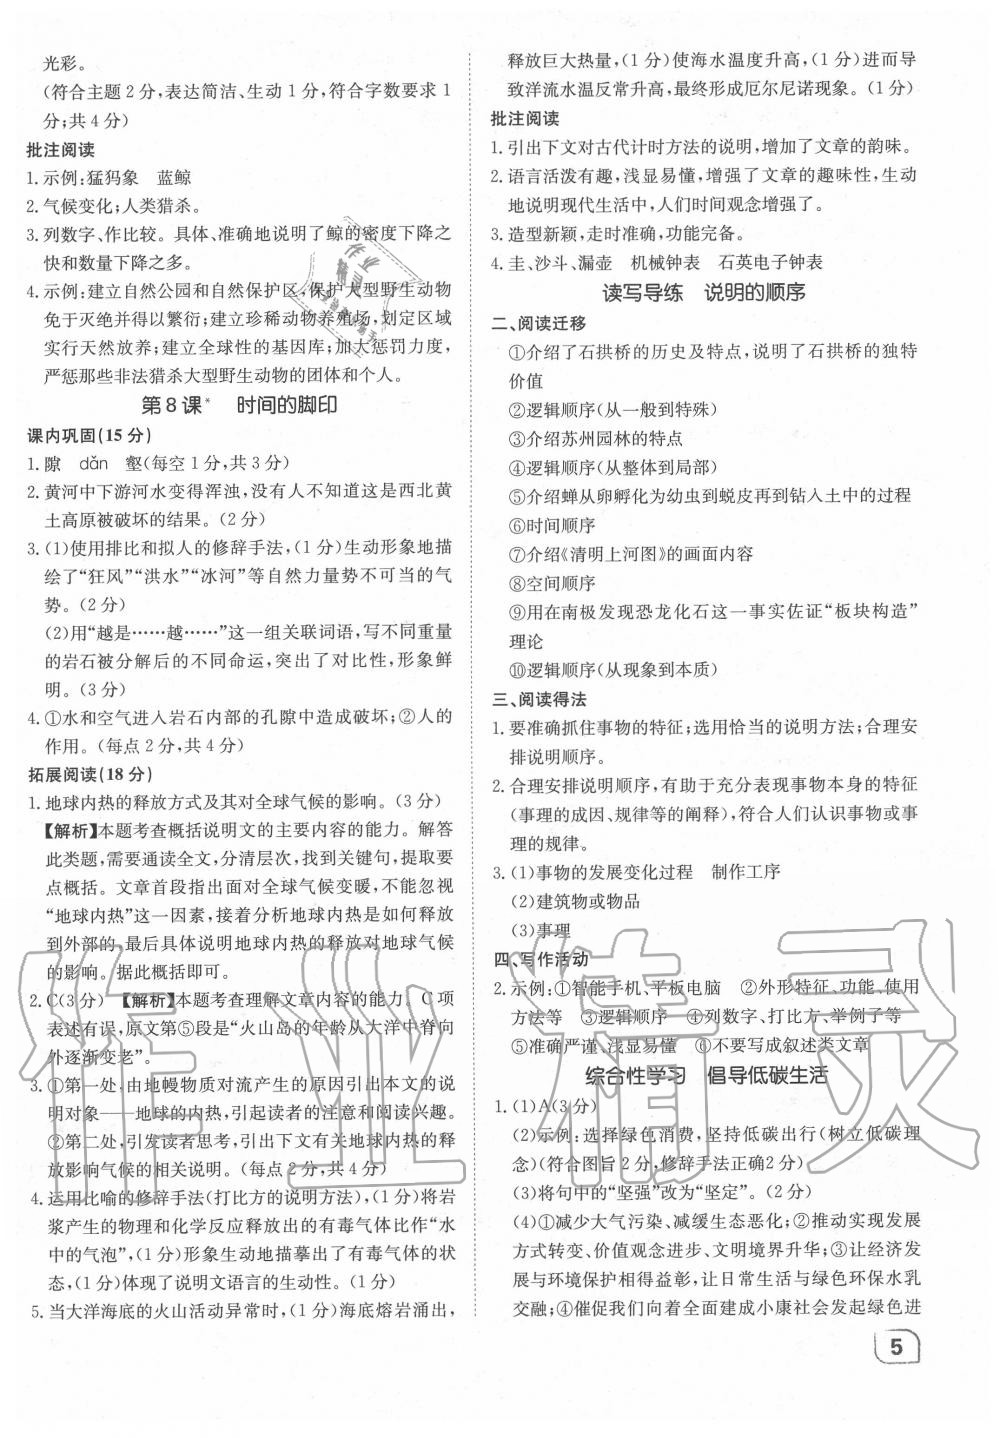 光彩。
(符合主题2分,表达简洁、生动1分,符合字数要求1
分;共4分)
批注阅读
1.示例:猛犸象　蓝鲸
2.气候变化;人类猎杀。
3.列数字、作比较。具体、准确地说明了鲸的密度下降之
快和数量下降之多。
4.示例:建立自然公园和自然保护区,保护大型野生动物
免于灭绝并得以繁衍;建立珍稀动物养殖场,划定区域
实行天然放养;建立全球性的基因库;加大惩罚力度,
严惩那些非法猎杀大型野生动物的团体和个人。
第8课*　时间的脚印
课内巩固(15分)
1.隙　dǎn　壑(每空1分,共3分)
2.黄河中下游河水变得浑浊,没有人不知道这是西北黄
土高原被破坏的结果。(2分)
3.(1)使用排比和拟人的修辞手法,(1分)生动形象地描
绘了“狂风”“洪水”“冰河”等自然力量势不可当的气
势。(2分)
(2)用“越是……越……”这一组关联词语,写不同重量
的岩石被分解后的不同命运,突出了对比性,形象鲜
明。(3分)
4.①水和空气进入岩石内部的孔隙中造成破坏;②人的
作用。(每点2分,共4分)
拓展阅读(18分)
1.地球内热的释放方式及其对全球气候的影响。(3分)
【解析】本题考查概括说明文的主要内容的能力。解答
此类题,需要通读全文,分清层次,找到关键句,提取要
点概括。文章首段指出面对全球气候变暖,不能忽视
“地球内热”这一因素,接着分析地球内热是如何释放
到外部的,最后具体说明地球内热的释放对地球气候
的影响。据此概括即可。
2.C(3分)　【解析】本题考查理解文章内容的能力。C项
表述有误,原文第⑤段是“火山岛的年龄从大洋中脊向
外逐渐变老”。
3.①第一处,由地幔物质对流产生的原因引出本文的说
明对象——地球的内热,引起读者的注意和阅读兴趣。
②第二处,引发读者思考,引出下文有关地球内热的释
放影响气候的相关说明。(每点2分,共4分)
4.运用比喻的修辞手法(打比方的说明方法),(1分)将岩
浆产生的物理和化学反应释放出的有毒气体比作“水
中的气泡”,(1分)形象生动地描摹出了有毒气体的状
态,(1分)体现了说明文语言的生动性。(1分)
5.当大洋海底的火山活动异常时,(1分)海底熔岩涌出,
释放巨大热量,(1分)使海水温度升高,(1分)进而导
致洋流水温反常升高,最终形成厄尔尼诺现象。(1分)
批注阅读
1.引出下文对古代计时方法的说明,增加了文章的韵味。
2.语言活泼有趣,浅显易懂,增强了文章的趣味性,生动
地说明现代生活中,人们时间观念增强了。
3.造型新颖,走时准确,功能完备。
4.圭、沙斗、漏壶　机械钟表　石英电子钟表
读写导练　说明的顺序
二、阅读迁移
①介绍了石拱桥的历史及特点,说明了石拱桥的独特
价值
②逻辑顺序(从一般到特殊)
③介绍苏州园林的特点
④逻辑顺序(从整体到局部)
⑤介绍蝉从卵孵化为幼虫到蜕皮再到钻入土中的过程
⑥时间顺序
⑦介绍《清明上河图》的画面内容
⑧空间顺序
⑨用在南极发现恐龙化石这一事实佐证“板块构造”
理论
⑩逻辑顺序(从现象到本质)
三、阅读得法
1.要准确抓住事物的特征;选用恰当的说明方法;合理安
排说明顺序。
2.合理安排说明顺序,有助于充分表现事物本身的特征
(事理的成因、规律等的阐释),符合人们认识事物与事
理的规律。
3.(1)事物的发展变化过程　制作工序
(2)建筑物或物品
(3)事理
四、写作活动
2.示例:①智能手机、平板电脑　②外形特征、功能、使用
方法等　③逻辑顺序　④列数字、打比方、举例子等
⑤准确严谨、浅显易懂　⑥不要写成叙述类文章
综合性学习　倡导低碳生活
1.(1)A(3分)
(2)示例:选择绿色消费,坚持低碳出行(树立低碳理
念)(符合图旨2分,修辞手法正确2分)
(3)将句中的“坚强”改为“坚定”。(2分)
(4)①减少大气污染、减缓生态恶化;②推动实现发展
方式转变、价值观念进步、文明境界升华;③让经济发
展与环境保护相得益彰,让日常生活与绿色环保水乳
交融;④催促我们向着全面建成小康社会发起绿色进
5
作业精灵